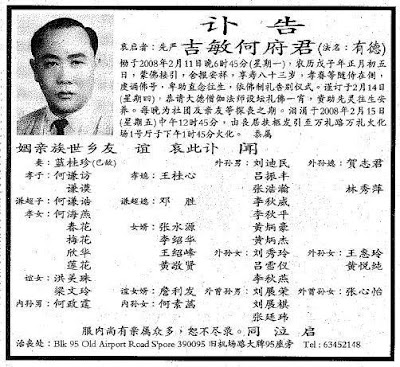 讣告
哀启者：先严 吉敏何府君(法名：有德)
恸于2008年2月11日晚6时45分(星期一)，农历戊子年正月初五
日，蒙佛接引，舍报安祥，享寿八十三岁，孝眷等随侍在侧，
虔诵佛号，牵助直念往生，依佛制礼告别仪式。谨订于2月14日
(星期四)，恭请大德僧伽法师设坛礼佛一宵，资助先灵往生安
养。每晚为社团及亲友等探丧之期。泪涓于2008年2月15日
(星期五)中午12时45分，由丧居扶柩发引至万礼路万礼火化
场1号厅于下午1时45分火化。泰属
姻亲族世乡友 谊 哀此讣 闻
妻：蓝桂珍(已故) 外孙男：刘迪民 外孙媳：贺志君
孝子：何谦访 孝媳：王桂心 吕振丰
谦谟 张浩瀚 林秀萍
谦超子：何谦诰 谦超媳：邓胜 李秋威
孝女：何海燕 李秋平
春花 女婿：张水源 黄炳豪
梅花 李绍华 黄炳杰
欣华 王绍峰 外孙女：刘秀玲 外孙女：王惠玲
莲花 黄敬贤 吕雪仪 黄悦纯
谊女：洪美珠 李秋燕
梁文玲 谊女婿：詹利发 外曾孙男：刘展荣 外曾孙女：张心怡
内孙男：何政霆 内孙女：何素蔼 刘展祺
张廷玮
服内尚有亲属众多，恕不尽录。同泣启
治丧处：Blk 95 Old Airport Road S'pore 390095 旧机场路大牌95座旁 Tel : 63452148